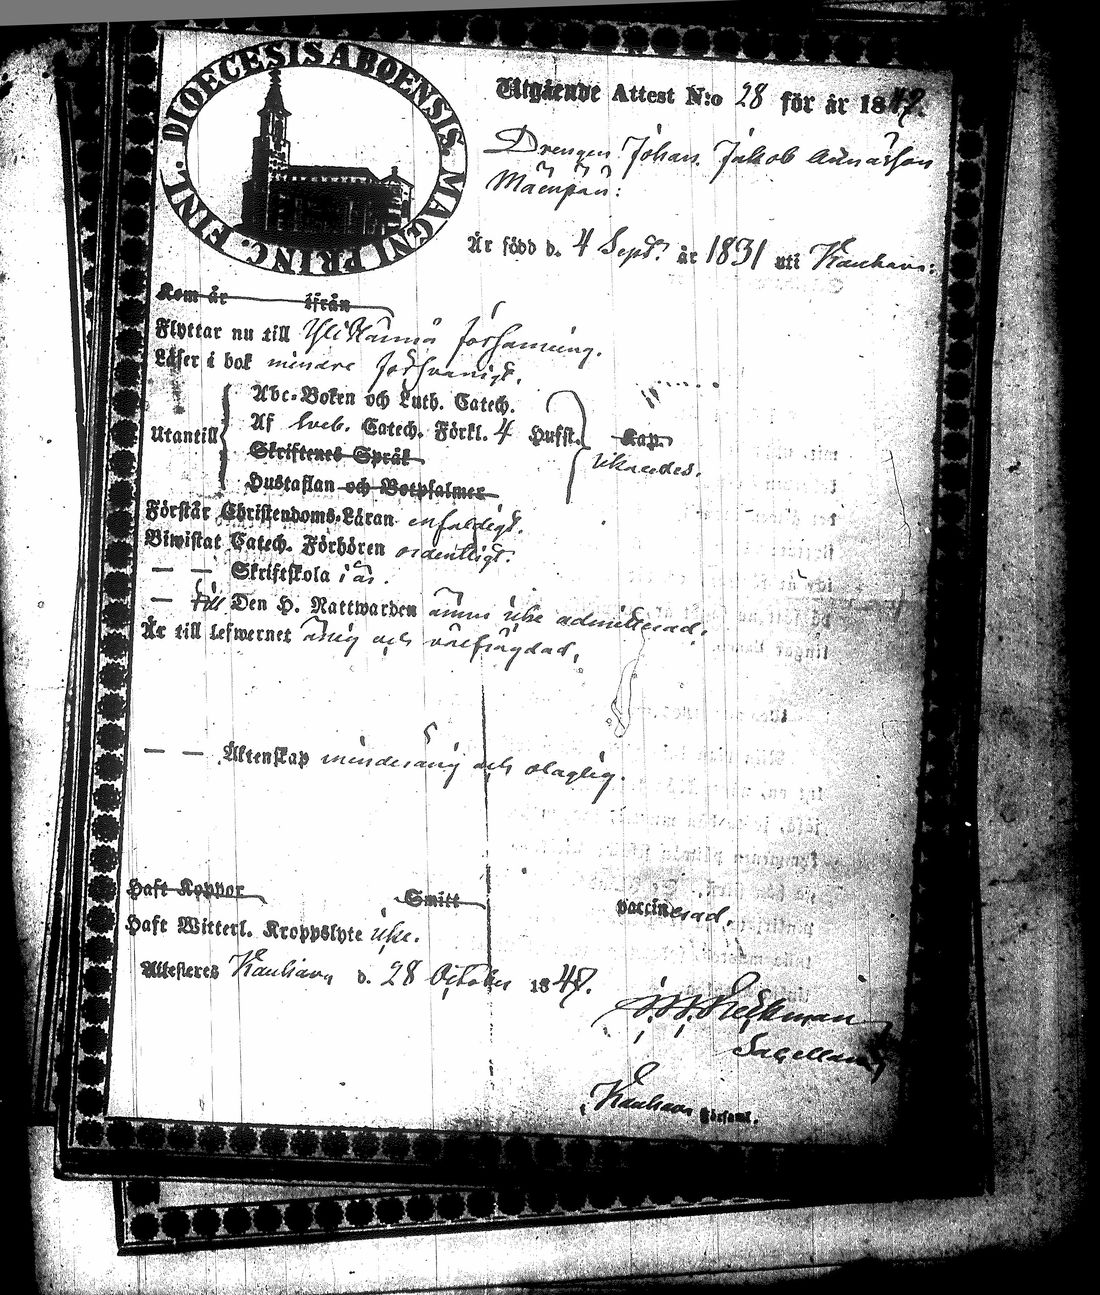 DIOECESIS ABOENSIS. MAGNI PRINC. FINL.
Utgående Attest N:o 28 för år 1847.
Drengen Johan Jakob
Mäenpää:
Är född d. 4 Sept. år 1831 uti Kauhava:
Kom år ifrån
Flyttar nu till Ylikannus församling.
Läser i bok mindre försvarligt.
Abc-Boken och Luth. Catech.
Utantill Af Sveb. Catech. Förkl. 4 Hufst. Kap.
Skriftenes Språk
Hustaflan och Botpsalmer
Förstår Christendoms-Läran enfaldigt.
Biwistat Catech. Förhören ordentligt.
— — Skriftskola i år.
— till Den H. Nattwarden ännu icke admitterad.
Är till lefwernet ärlig och välfrägdad.
— — Äktenskap minderårig och olaglig.
Haft Koppor Smitt vaccinerad.
Haft Witterl. Kroppslyte icke.
Attesteras Kauhava d. 28 October 1847.
Sacellan
Kauhava Församl.